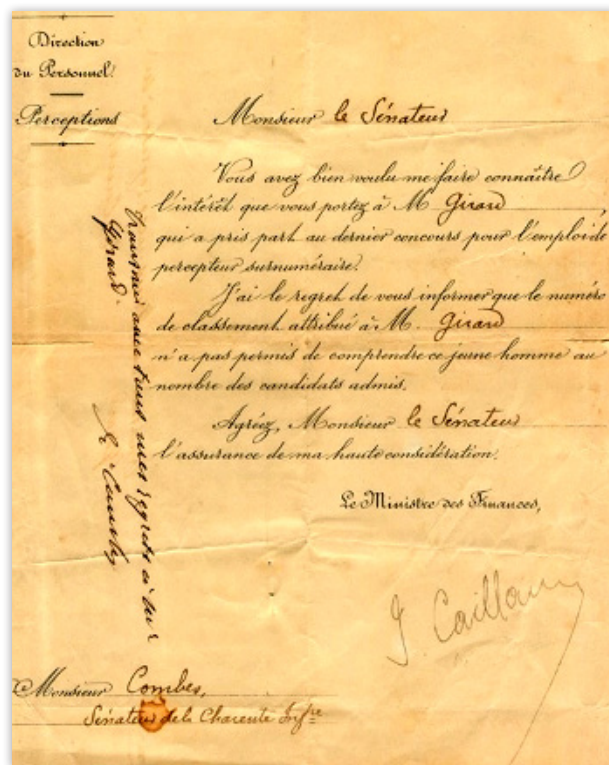 Direction
du Personnel.
Perceptions
Monsieur le Sénateur
Vous avez bien voulu me faire connaître
l'intérêt que vous portez à M. Girard
qui a pris part au dernier concours pour l'emploi de
percepteur surnuméraire.
J'ai le regret de vous informer que le numéro
de classement attribué à M. Girard
n'a pas permis de comprendre ce jeune homme au
nombre des candidats admis.
Agréez, Monsieur le Sénateur
l'assurance de ma haute considération.
Le Ministre des Finances,
J. Caillaux
Monsieur Combes,
Sénateur de la Charente Infre
Transmis avec tous mes regrets à M
Girard.
E Combes